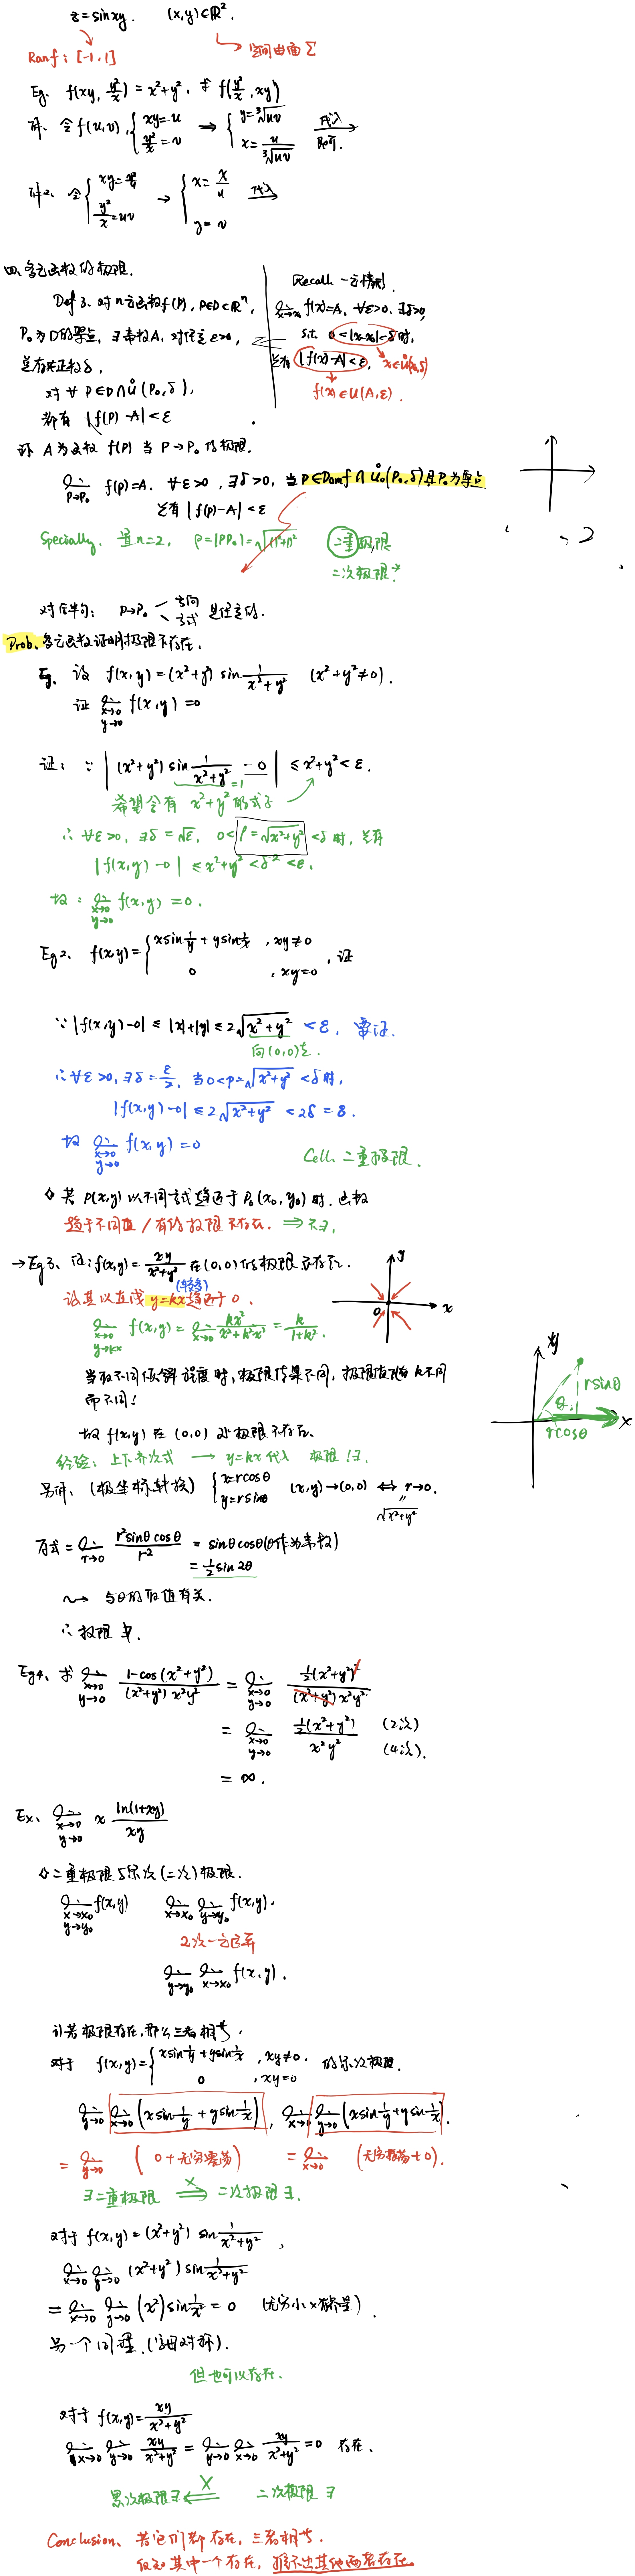 z = sin xy.  (x,y)∈ℝ².
Ran f: [-1,1]  空间曲面 Σ
Eg. f(xy, y²/x) = x²+y², 求 f(y²/x, xy)
解. 令 f(u,v), { xy=u, y²/x=v ⇒ { y=∛uv, x=u/∛uv 代入 即可.
解2. 令
→ { x=x/u, y=v 代入
四、多元函数的极限.
Def 3. 对 n元函数 f(P), P∈D⊂ℝⁿ,
P₀为D的聚点, ∃常数A, 对任意ε>0,
总存在正数δ,
对 ∀ P∈D∩Ů(P₀,δ),
都有 |f(P)-A|<ε
Recall 一元情形.
lim x→x₀ f(x)=A, ∀ε>0, ∃δ>0,
s.t. 0<|x-x₀|<δ时,
总有 |f(x)-A|<ε, x∈Ů(x₀,δ)
f(x)∈U(A,ε).
称 A为函数 f(P) 当 P→P₀ 的极限.
lim P→P₀ f(P)=A. ∀ε>0, ∃δ>0, 当 P∈Dom f∩Ů(P₀,δ)且P₀为聚点
总有 |f(P)-A|<ε
Specially. 当n=2, ρ=|PP₀|=√()²+()² 二重极限
二次极限
对后半句: P→P₀ 方向 方式 是任意的.
Prob. 多元函数证明极限不存在.
Eg. 设 f(x,y)=(x²+y²) sin 1/(x²+y²) (x²+y²≠0).
证 lim x→0 y→0 f(x,y)=0
证: ∵ |(x²+y²) sin 1/(x²+y²) - 0| ≤ x²+y² < ε.
=1
希望含有 x²+y² 的式子
∴ ∀ε>0, ∃δ=√ε, 0<ρ=√x²+y²<δ时, 总有
|f(x,y)-0| ≤ x²+y² < δ² < ε.
故: lim x→0 y→0 f(x,y)=0.
Eg2. f(x,y)= { x sin 1/y + y sin 1/x , xy≠0
0 , xy=0 , 证
∵ |f(x,y)-0| ≤ |x|+|y| ≤ 2√x²+y² < ε, 要证.
向(0,0)走.
∴ ∀ε>0, ∃δ=ε/2, 当0<ρ=√x²+y²<δ时,
|f(x,y)-0| ≤ 2√x²+y² < 2δ = ε.
故 lim x→0 y→0 f(x,y)=0
Cell. 二重极限.
◇ 若 P(x,y) 以不同方式趋近于 P₀(x₀,y₀) 时, 函数
趋于不同值 / 有的极限不存在. ⇒ 不∃.
→Eg3. 证: f(x,y)=xy/(x²+y²) 在(0,0)的极限不存在.
(特殊)
设其以直线 y=kx趋近于0.
lim x→0 y→kx f(x,y) = lim x→0 kx²/(x²+k²x²) = k/(1+k²).
y
x
0
当取不同倾斜程度时, 极限结果不同, 极限值随着k不同
而不同!
故 f(x,y) 在 (0,0) 处极限不存在.
经验: 上下齐次式 → y=kx代入 极限!∃.
y
x
θ
rsinθ
rcosθ
另解. (极坐标转换) { x=rcosθ y=rsinθ (x,y)→(0,0) ⇔ r→0.
√x²+y²
原式 = lim r→0 r²sinθcosθ/r² = sinθcosθ(θ作为常数)
= 1/2 sin2θ
与θ的取值有关.
∴ 极限∄.
Eg4. 求 lim x→0 y→0 1-cos(x²+y²)/(x²+y²)x²y² = lim x→0 y→0 ½(x²+y²)²/(x²+y²)x²y²
= lim x→0 y→0 ½(x²+y²)/x²y² (2次) (4次).
= ∞.
Ex. lim x→0 y→0 x ln(1+xy)/xy
◇ 二重极限与累次(二次)极限.
lim x→x₀ y→y₀ f(x,y)  lim x→x₀ lim y→y₀ f(x,y).
2次一元运算
lim y→y₀ lim x→x₀ f(x,y).
1) 若极限存在, 那么三者相等.
对于 f(x,y)= { x sin 1/y + y sin 1/x , xy≠0. 的累次极限.
0 , xy=0
lim y→0 lim x→0 (x sin 1/y + y sin 1/x), lim x→0 lim y→0 (x sin 1/y + y sin 1/x).
= lim y→0 (0+无穷震荡) = lim x→0 (无穷震荡+0).
∃二重极限 ⇒× 二次极限∃.
对于 f(x,y)=(x²+y²) sin 1/(x²+y²),
lim x→0 lim y→0 (x²+y²) sin 1/(x²+y²)
= lim x→0 lim y→0 (x²) sin 1/x² = 0 (无穷小×有界量).
另一个同理. (字母对称).
但也可以存在.
对于 f(x,y)=xy/(x²+y²)
lim x→0 lim y→0 xy/(x²+y²) = lim y→0 lim x→0 xy/(x²+y²) = 0 存在.
累次极限∃ ⇐× 二次极限∃
Conclusion. 若它们都存在, 三者相等.
仅知其中一个存在, 推不出其他两者存在.